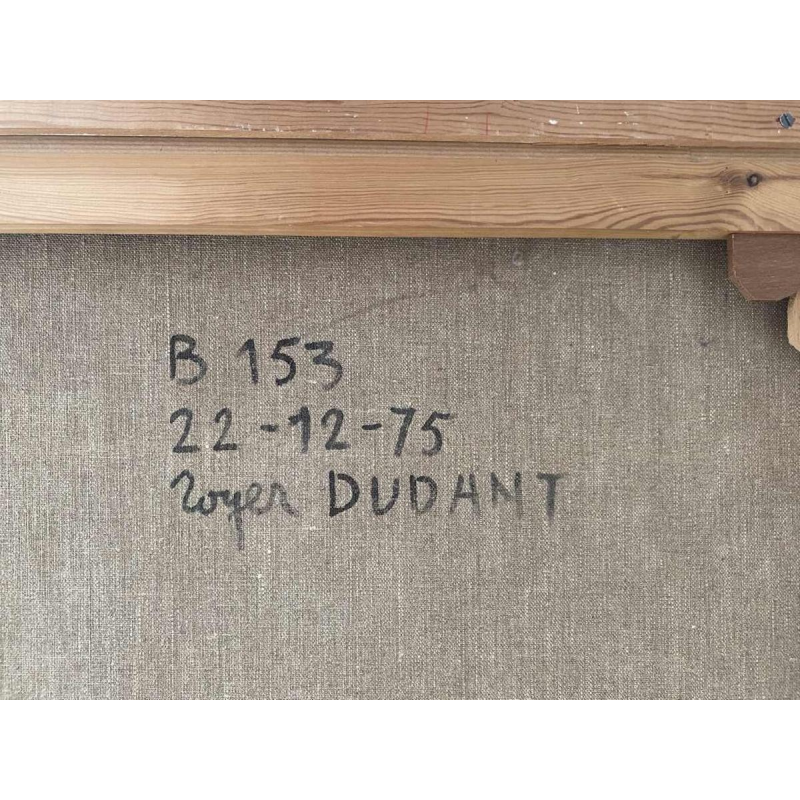 B 153
22-12-75
Roger DUDANT